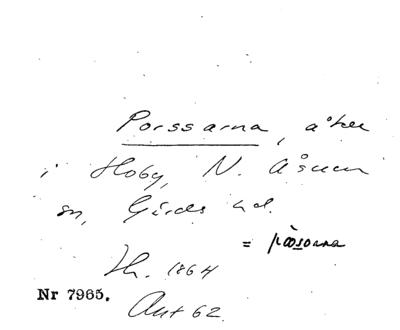 Porssarna, åker
i Hoby, N. Åsum
sn, Gärds hd.
= påssarna
Th. 1864
Nr 7965.
Ant 62